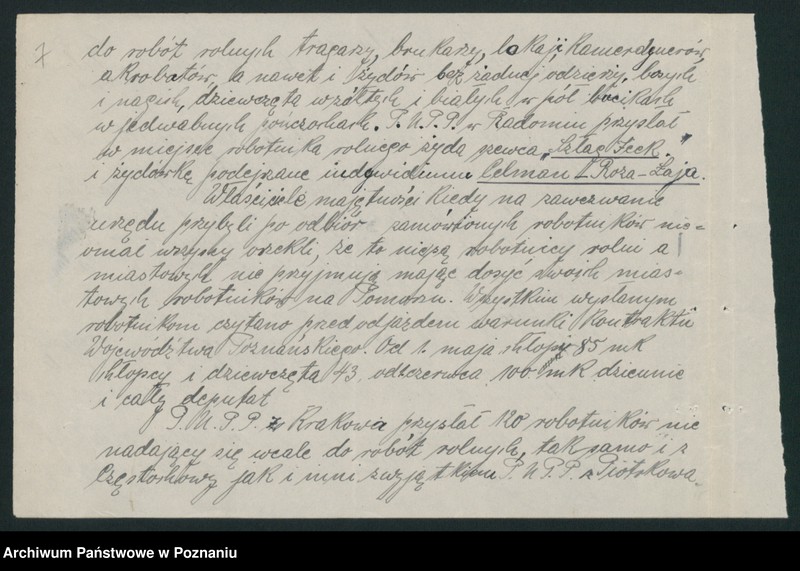 7
do robót rolnych tragarzy, brukarzy, lokaji kamerdynerów
akrobatów, a nawet i żydów bez żadnej odzieży, bosych
i nagich, dziewczęta w żółtych i białych w pół bucikach
w jedwabnych pończochach. P.U.P.P. w Radomiu przysłał
w miejsce robotnika rolnego żyda szewca
i żydówkę podejrzane indywiduum Celman Roza-Łaja.
Właściciele majętności kiedy na zawezwanie
urzędu przybyli po odbiór zamówionych robotników nie=
omal wszyscy orzekli, że to nie są robotnicy rolni a
miastowych nie przyjmują mając dosyć swoich mias=
towych robotników na Pomorzu. Wszystkim wysłanym
robotnikom czytano przed odjazdem warunki kontraktu
Województwa Poznańskiego. Od 1. maja chłopy 85 mk
chłopcy i dziewczęta 43, od czerwca 100 mk dziennie
i cały deputat
P.U.P.P. z Krakowa przysłał 120 robotników nie
nadający się wcale do robót rolnych, tak samo i z
Częstochowy jak i inni z wyjątkiem P.U.P.P. z Piotrkowa.
Archiwum Państwowe w Poznaniu